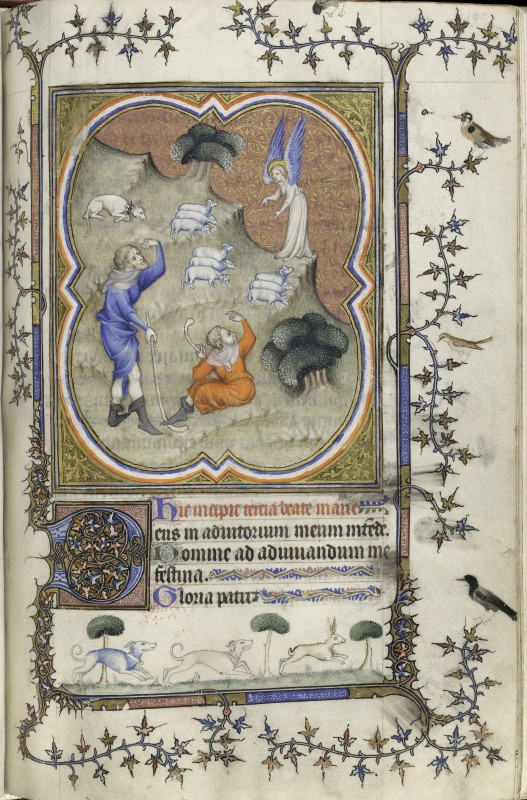 Hic incipit tercia beate marie
Deus in aditorium meum intede.
Domine ad adiuuandum me
festina.
Gloria patri